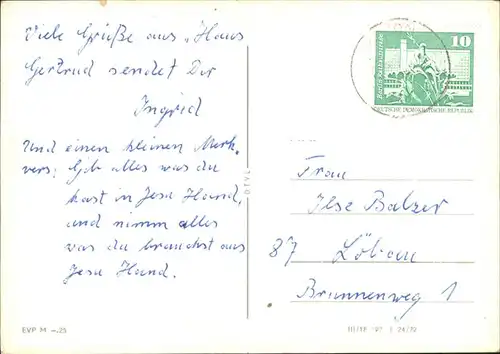 Viele Grüße aus „Haus
Gertrud sendet Dir
Ingrid
Und einen kleinen Merk-
vers: Gib alles was du
hast in Jesu Hand,
und nimm alles
was du brauchst aus
Jesu Hand.
EVP M -,25
DTVL
10
BERLIN
DEUTSCHE DEMOKRATISCHE REPUBLIK
Frau
Ilse Balzer
87 Löbau
Brunnenweg 1
III/18